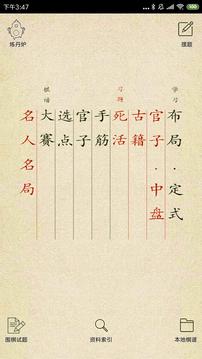 下午3:47
炼丹炉
摆题
学习
布局·定式
官子·中盘
古籍
习题
死活
手筋
官子
选点
棋谱
大赛
名人名局
围棋试题
资料索引
本地棋谱